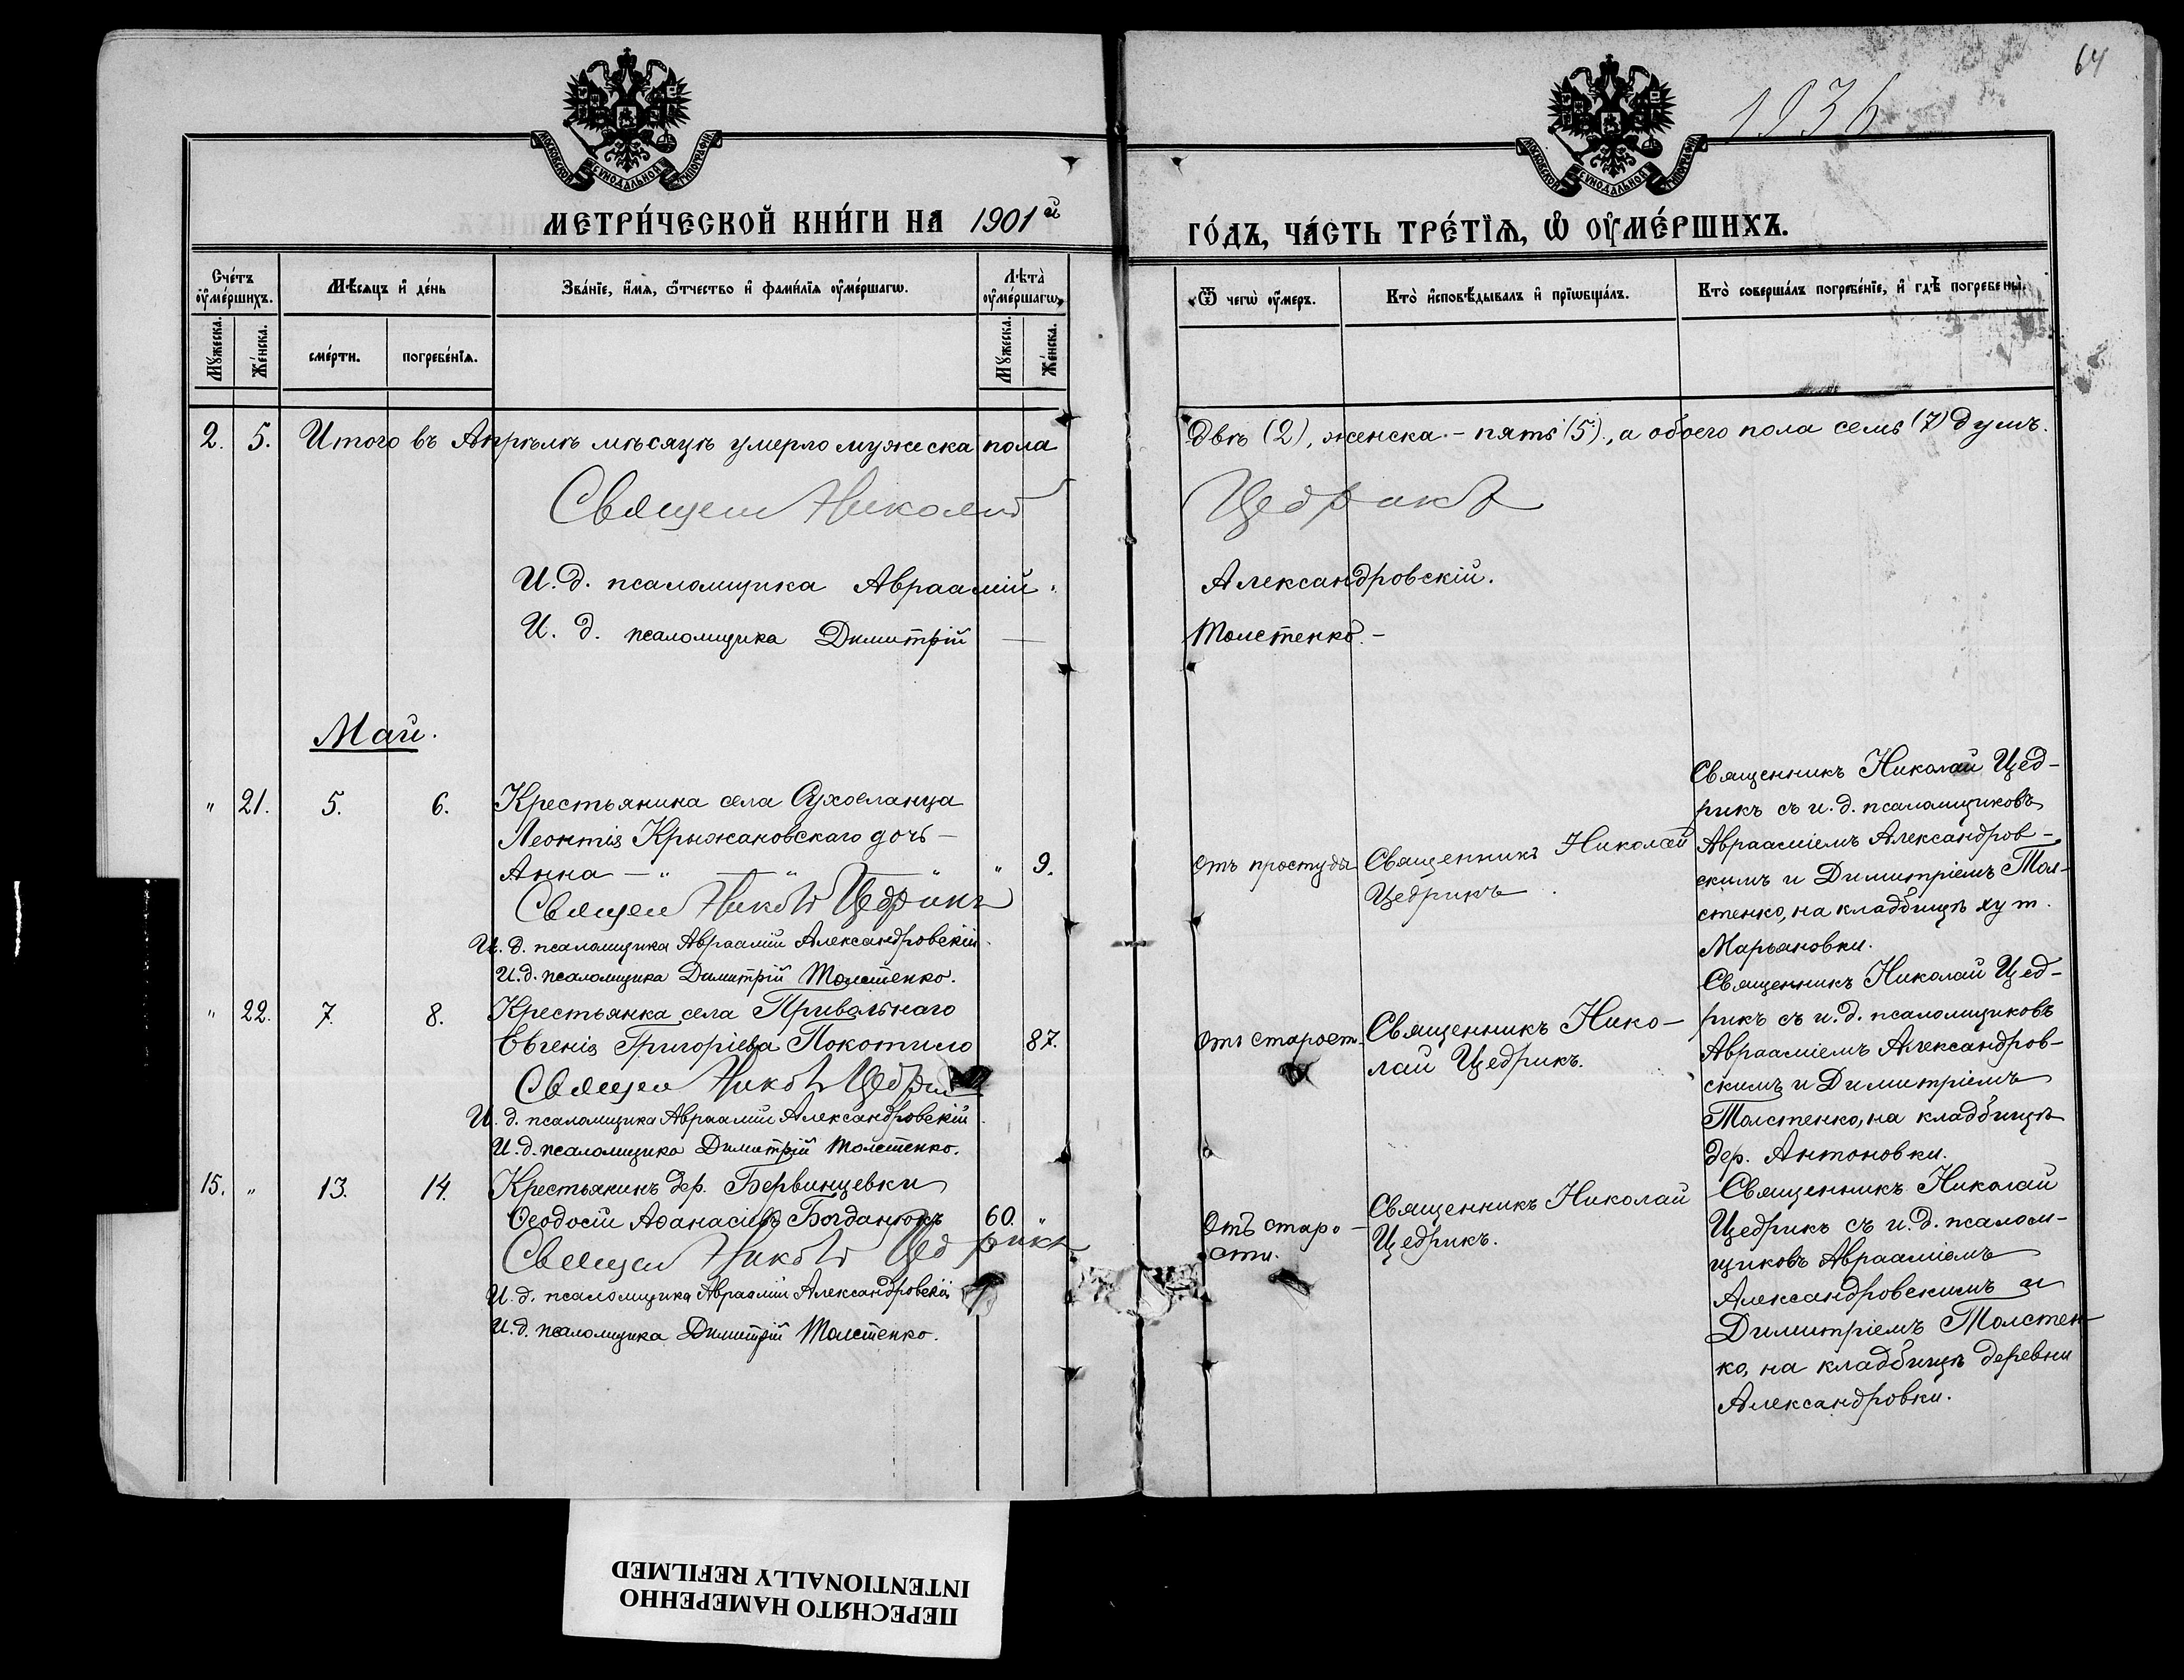 64
1936
МОСКОВСКОЙ СѴНОДАЛЬНОЙ ТИПОГРАФІИ
МОСКОВСКОЙ СѴНОДАЛЬНОЙ ТИПОГРАФІИ
МЕТРИ́ЧЕСКОЙ КНИ́ГИ НА 1901й
ГО́ДЪ, ЧА́СТЬ ТРЕ́ТЇѦ, Ѡ ОУ҆МЕ́РШИХЪ.
Сче́тъ оу҆ме́ршихъ.
Мꙋ́жеска.
Же́нска.
Мѣ́сяцъ и҆ де́нь
сме́рти.
погребе́нїѧ.
Зва́нїе, и҆́мѧ, ѻ҆́тчество и҆ фами́лїѧ оу҆ме́ршагѡ.
Лѣта̀ оу҆ме́ршагѡ
Мꙋ́жеска.
Же́нска.
Ѿ чегѡ̀ оу҆́меръ.
Кто̀ и҆сповѣ́дывалъ и҆ прїѡбща́лъ.
Кто̀ соверша́лъ погребе́нїе, и҆ гдѣ̀ погребены̀.
2. 5. Итого въ Апрѣлѣ мѣсяцѣ умерло мужеска пола двѣ (2), женска - пять (5), а обоего пола семь (7) душъ.
Священ Николай Цедрикъ
И. д. псаломщика Авраамій Александровскій.
И. д. псаломщика Димитрій — Толстенко. -
Май.
" 21. 5. 6. Крестьянина села Сухоеланца
Леонтія Крыжановскаго дочь -
Анна — " — " — " " 9.
Священ Никол Цедрикъ
И. д. псаломщика Авраамій Александровскій.
И. д. псаломщика Димитрій Толстенко.
Отъ простуды
Священникъ Николай
Цедрикъ.
Священникъ Николай Цед-
рикъ съ и. д. псаломщиковъ
Авраамiемъ Александров-
скимъ и Димитрiемъ Тол-
стенко, на кладбищѣ хут.
Марьяновки.
" 22. 7. 8. Крестьянка села Привольнаго
Евгенія Григоріева Покотило 87.
Священ Никол Цедрик
И. д. псаломщика Авраамій Александровскій.
И. д. псаломщика Димитрій Толстенко.
Отъ старост.
Священникъ Нико-
лай Цедрикъ.
Священникъ Николай Цед-
рикъ съ и. д. псаломщиковъ
Авраамiемъ Александров-
скимъ и Димитрiемъ
Толстенко, на кладбищѣ
дер. Антоновки.
15. " 13. 14. Крестьянинъ дер. Бервинцевки
Ѳеодосій Аѳанасіевъ Богданюкъ 60. "
Священ Никол Цедрикъ
И. д. псаломщика Авраамій Александровскій
И. д. псаломщика Димитрій Толстенко.
Отъ старо-
сти.
Священникъ Николай
Цедрикъ.
Священникъ Николай
Цедрикъ съ и. д. псалом-
щиковъ Авраамiемъ
Александровскимъ и
Димитрiемъ Толстен-
ко, на кладбищѣ деревни
Александровки.
ПЕРЕСНЯТО НАМЕРЕННО
INTENTIONALLY REFILMED